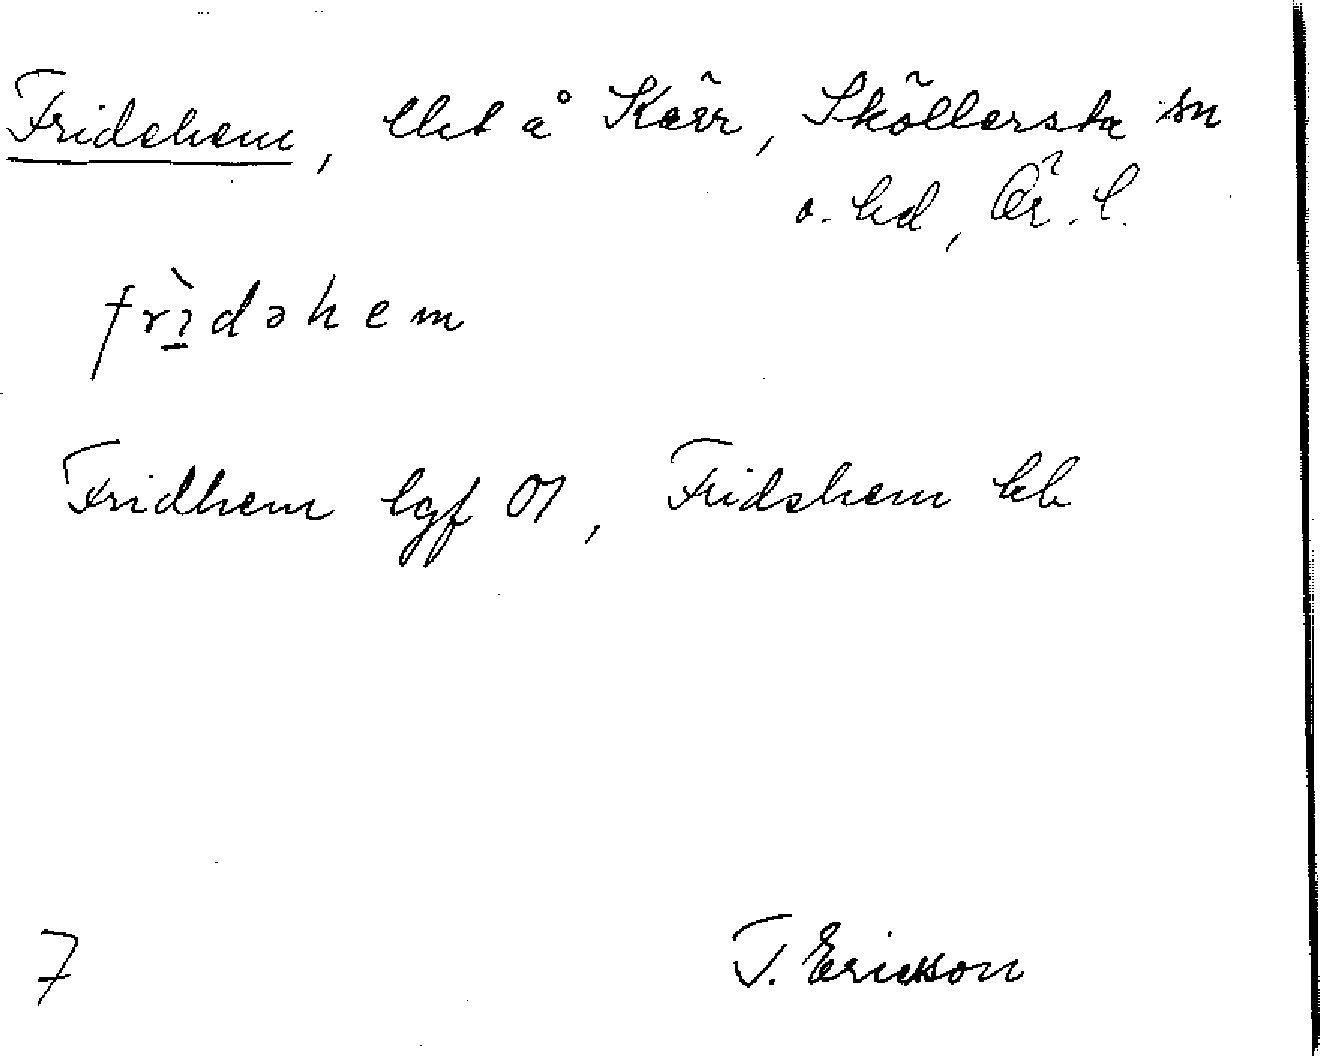 Fridehem, lht å Kärr, Sköllersta sn
o. hd, Ör. l.
frìdəhem
Fridhem lgf 07, Fridshem kb
7
T. Ericsson